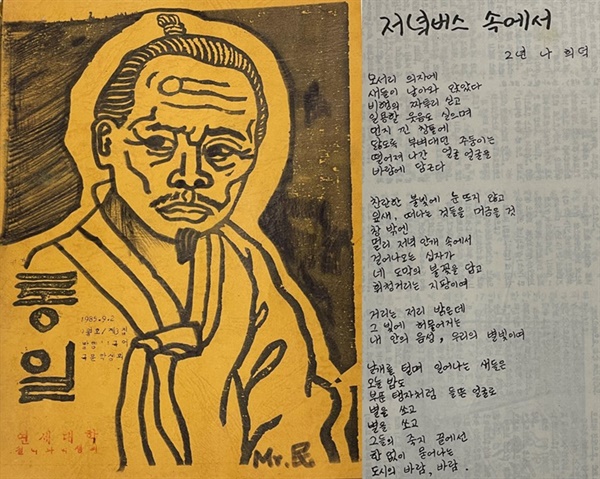 통일
1985.9.2
국문학생회
연세대학
Mr.民
저녁버스 속에서
2년 나 희덕
모서리 의자에
새들이 날아와 앉았다
비행의 짜투리 싣고
일용할 웃음도 실으며
먼지 낀 창틀에
않도록 부벼대던 주둥이는
떨어져 나간 얼굴 얼굴을
바람에 담근다
찬란한 불빛에 눈뜨지 않고
잎새, 떠나는 것들을 머금을 것
창 밖엔
멀리 저녁 안개 속에서
걸어나오는 십자가
네 도막의 불꽃을 담고
휘청거리는 지팡이여
거리는 저리 밝은데
그 빛에 허물어지는
내 안의 음성, 우리의 별빛이여
날개를 털며 일어나는 새들은
오늘 밤도
부푼 탱자처럼 들뜬 얼굴로
별을 쏘고
별을 쏘고
그들의 죽지 끝에선
한없이 묻어나는
도시의 바람, 바람.